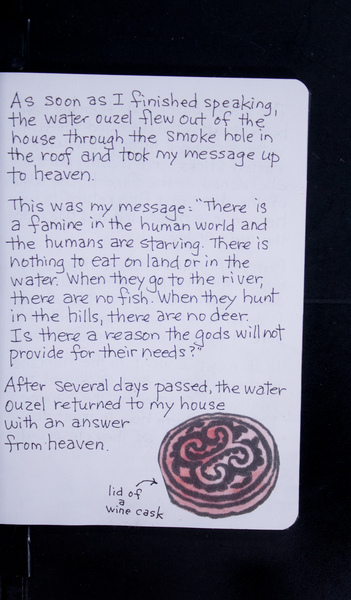 As soon as I finished speaking,
the water ouzel flew out of the
house through the smoke hole in
the roof and took my message up
to heaven.
This was my message: "There is
a famine in the human world and
the humans are starving. There is
nothing to eat on land or in the
water. When they go to the river,
there are no fish. When they hunt
in the hills, there are no deer.
Is there a reason the gods will not
provide for their needs?"
After several days passed, the water
ouzel returned to my house
with an answer
from heaven.
lid of
a
wine cask